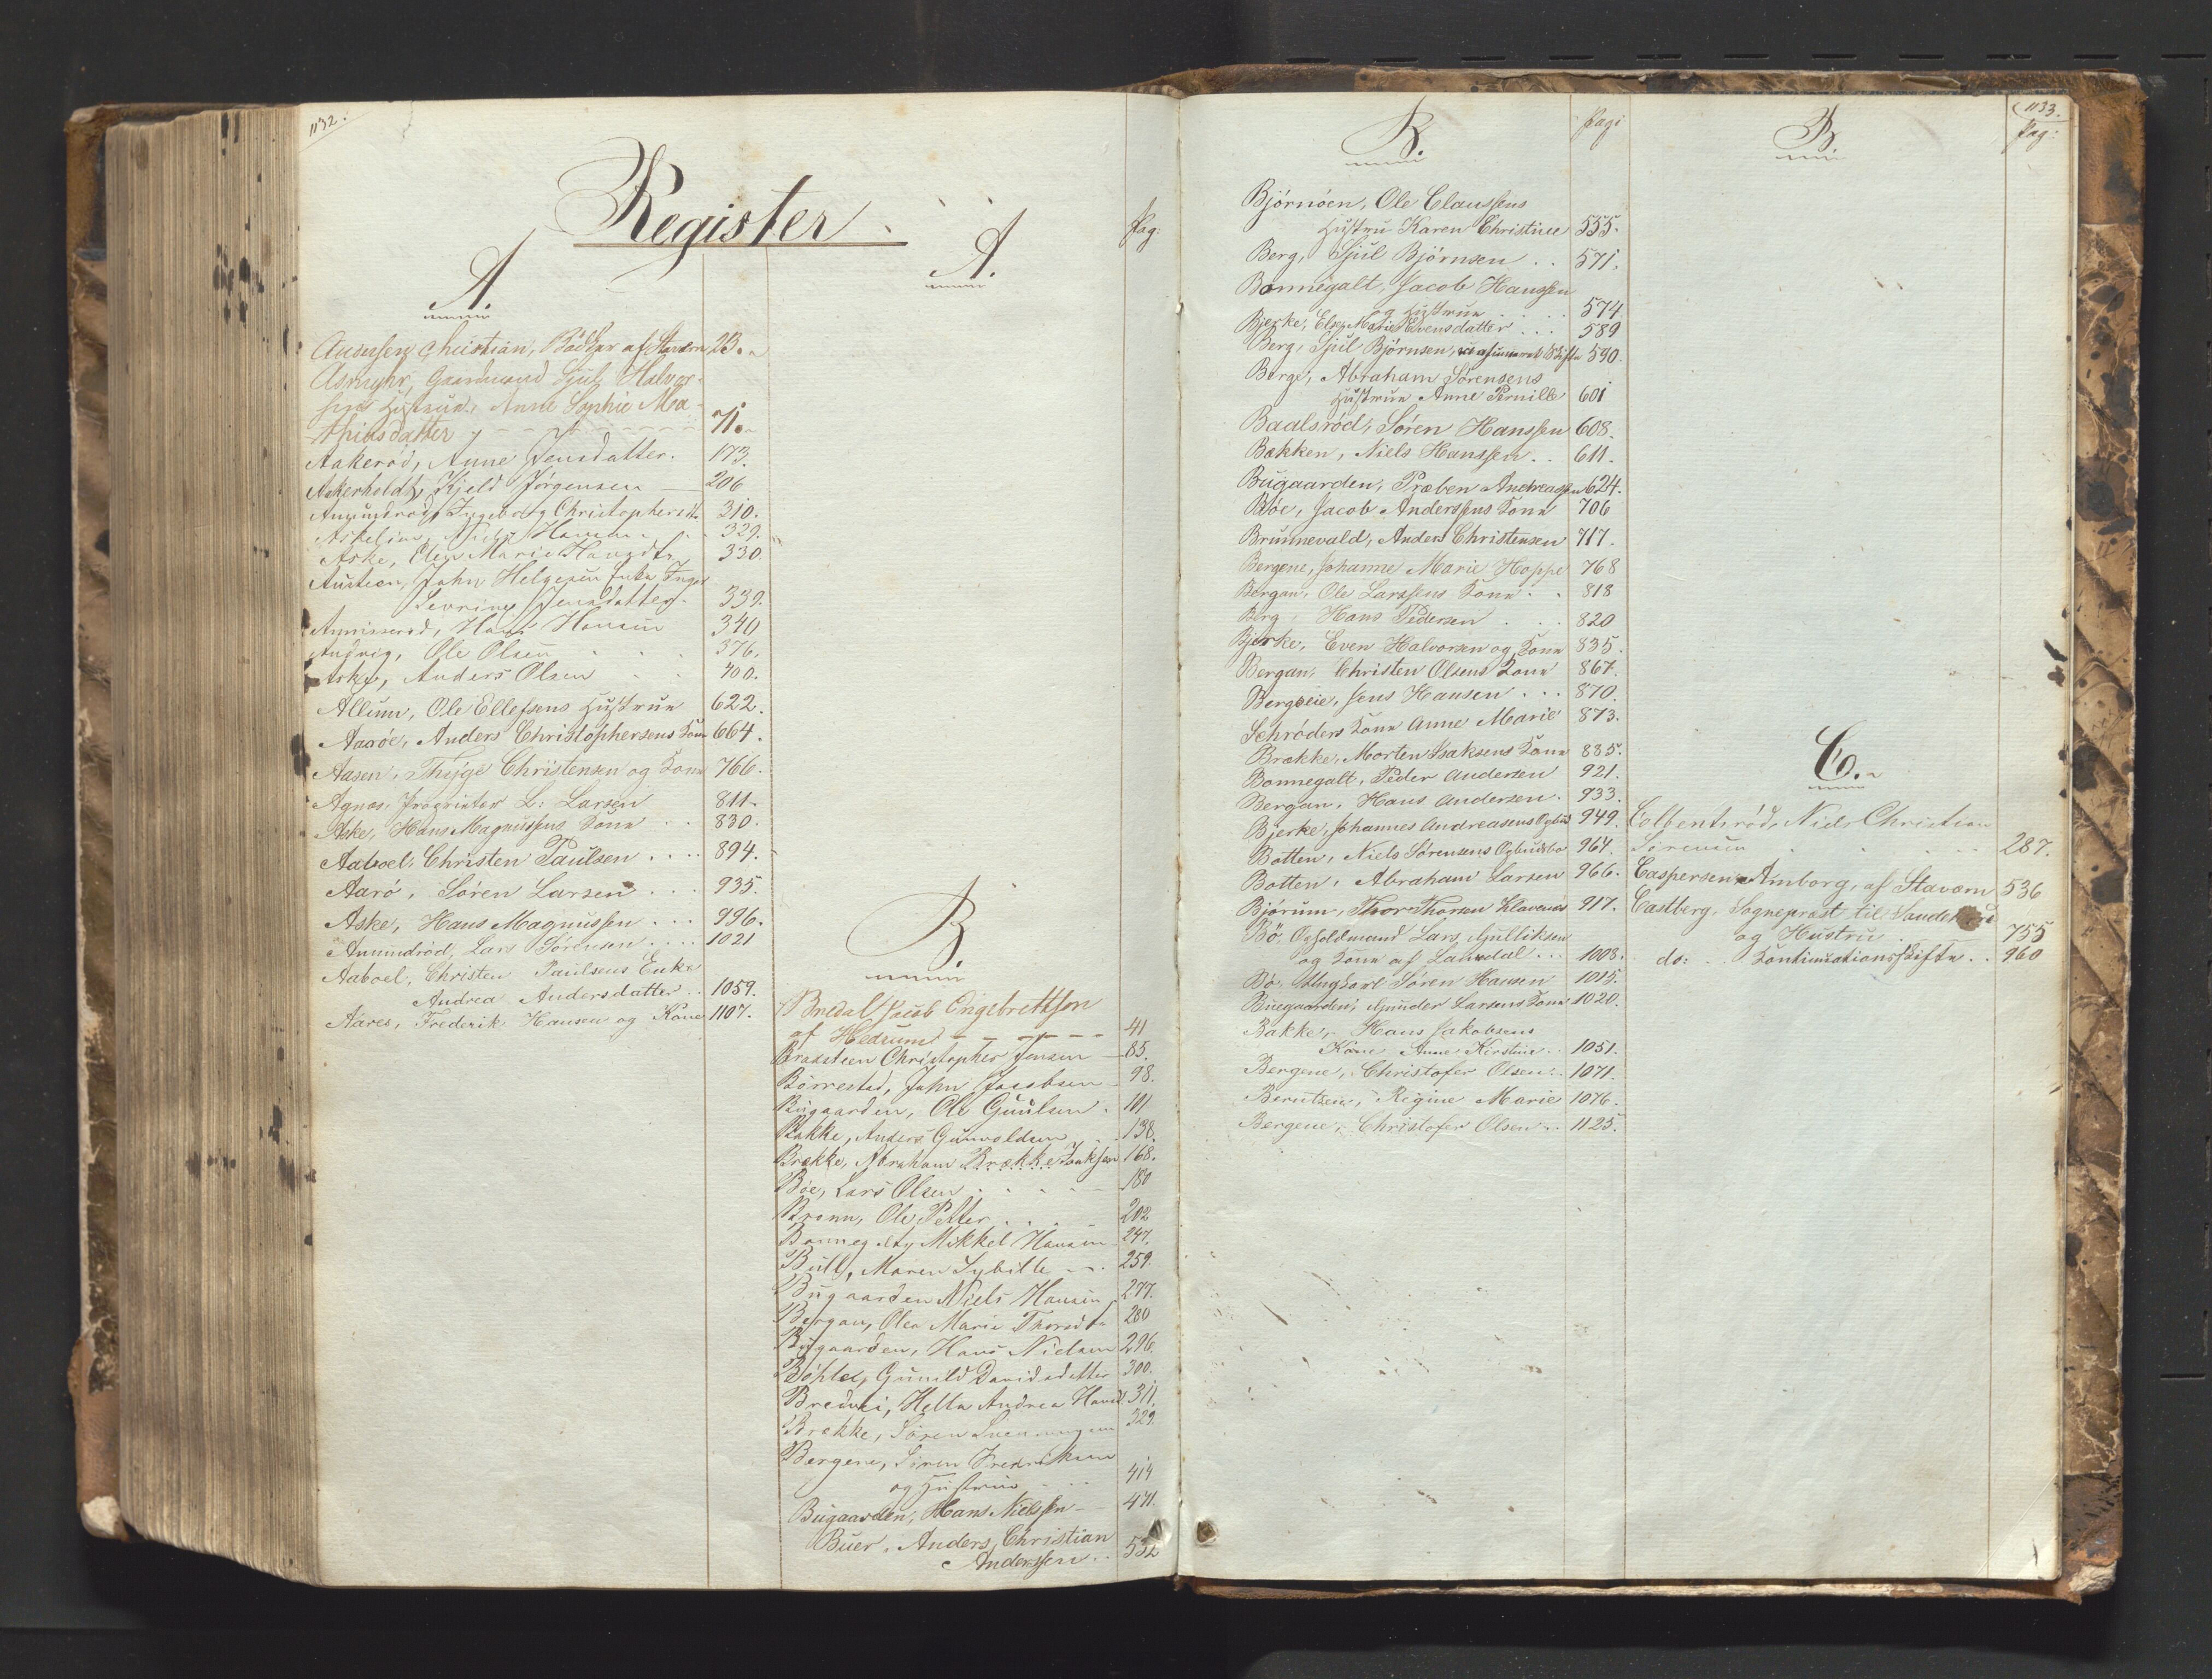 1132.
Register
A.
Andersen, Christian, Bödker af Stavern 23.
Asmyhr, Gaardmand Sjul Halvor-
sens Hustrue, Anne Sophie Ma-
thiasdatter 71.
Aakerød, Anne Jensdatter. 173.
Askerholdt, Kjeld Jörgensen 206
Anundrød, Ingeborg Christophersdtr 310.
Askeliem, Niels Hansen 329.
Aske, Elen Marie Hansdtr 330.
Austeon, John Helgesen Enke Inger
Levrine Jensdatter. 339.
Annisserød, Hans Hansen 340
Andvig, Ole Olsen 376.
Aske, Anders Olsen 400.
Allum, Ole Ellefsens Hustrue 622.
Aaröe, Anders Christophersens Kone 664.
Aasen, Thyge Christensen og Kone 766.
Agnæs, Proprietær L: Larsen 811.
Aske, Hans Magnussens Kone 830.
Aaboel, Christen Paulsen 894.
Aarö, Sören Larsen 935.
Aske, Hans Magnussen 996.
Anundröd, Lars Sörensen 1021
Aaboel, Christen Paulsens Enke
Andrea Andersdatter 1059.
Aares, Frederik Hansen og Kone 1107.
A.
Pag:
B.
Bredal Jacob Engebrethsen
af Hedrum 41
Brasteen Christopher Jensen 85.
Börrestad, John Jacobsen 98.
Bugaarden, Ole Guulsen. 101
Bakke, Anders Gunvoldsen 138.
Brække, Abraham Brække Isaksen 168.
Böe, Lars Olsen 180
Brønn, Ole Petter 202
Bonnegalt, Mikkel Hansen 247.
Bull, Maren Sybille 259.
Bugaarden Niels Hansen 277.
Bergan, Olea Marie Thorsdtr 280
Bugaarden, Hans Nielsen 296.
Böhle, Gunild Davidsdatter 300.
Bredvei, Hella Andrea Hansd. 311.
Brække, Sören Svenningsen 329.
Bergene, Sören Fredriksen
og Hustrue 414
Bugaarden, Hans Nielssen 471.
Buer, Anders Christian
Anderssen 532
B.
Pag:
Björnöen, Ole Claussens
Hustru Karen Christine 555.
Berg, Sjul Björnsen 571.
Bonnegalt, Jacob Hanssen
og Hustrue 574
Bjerke, Else Marie Evensdatter 589
Berg, Sjul Björnsen, Skifte 590.
Berge, Abraham Sörensens
Hustrue Anne Pernille 601
Baalsröd, Sören Hanssen 608.
Bakken, Niels Hanssen 611.
Bugaarden, Præben Andreassen 624.
Böe, Jacob Anderssens Kone 706
Brunnevald, Anders Christensen 717.
Bergene, Johanne Marie Hoppe 768
Bergan, Ole Larssens Kone 818
Berg, Hans Pedersen 820
Bjerke, Even Halvorsen og Kone 835.
Bergan, Christen Olsens Kone 867.
Bergseie, Jens Hansen 870.
Schröders Kone Anne Marie 873.
Brække, Morten Isaksens Kone 885.
Bonnegalt, Peder Andersen 921.
Bergan, Hans Andersen. 933.
Bjerke, Johannes Andreasens Opbud 949.
Botten, Niels Sörensens Opbudsbo 964.
Botten, Abraham Larsen 966.
Björum, Thor Thorsen Klavenæs 917.
Bö, Opholdsmand Lars Gulliksen
og Kone af Laurdal 1008.
Bö, Ungkarl Sören Hansen 1015.
Buegaarden, Gunder Larsens Kone 1020.
Bakke, Hans Jakobsens
Kone Anne Kirstine 1051.
Bergene, Christofer Olsen 1071.
Berntsen, Regine Marie 1076.
Bergene, Christofer Olsen 1125.
B.
1133.
Pag:
C.
Colbentsröd, Niels Christian
Sörensen 287.
Caspersen Amborg, af Stavern 536
Castberg, Sogneprest til Sandeherd
og Hustru 755
do: Kontinuationsskifte 960